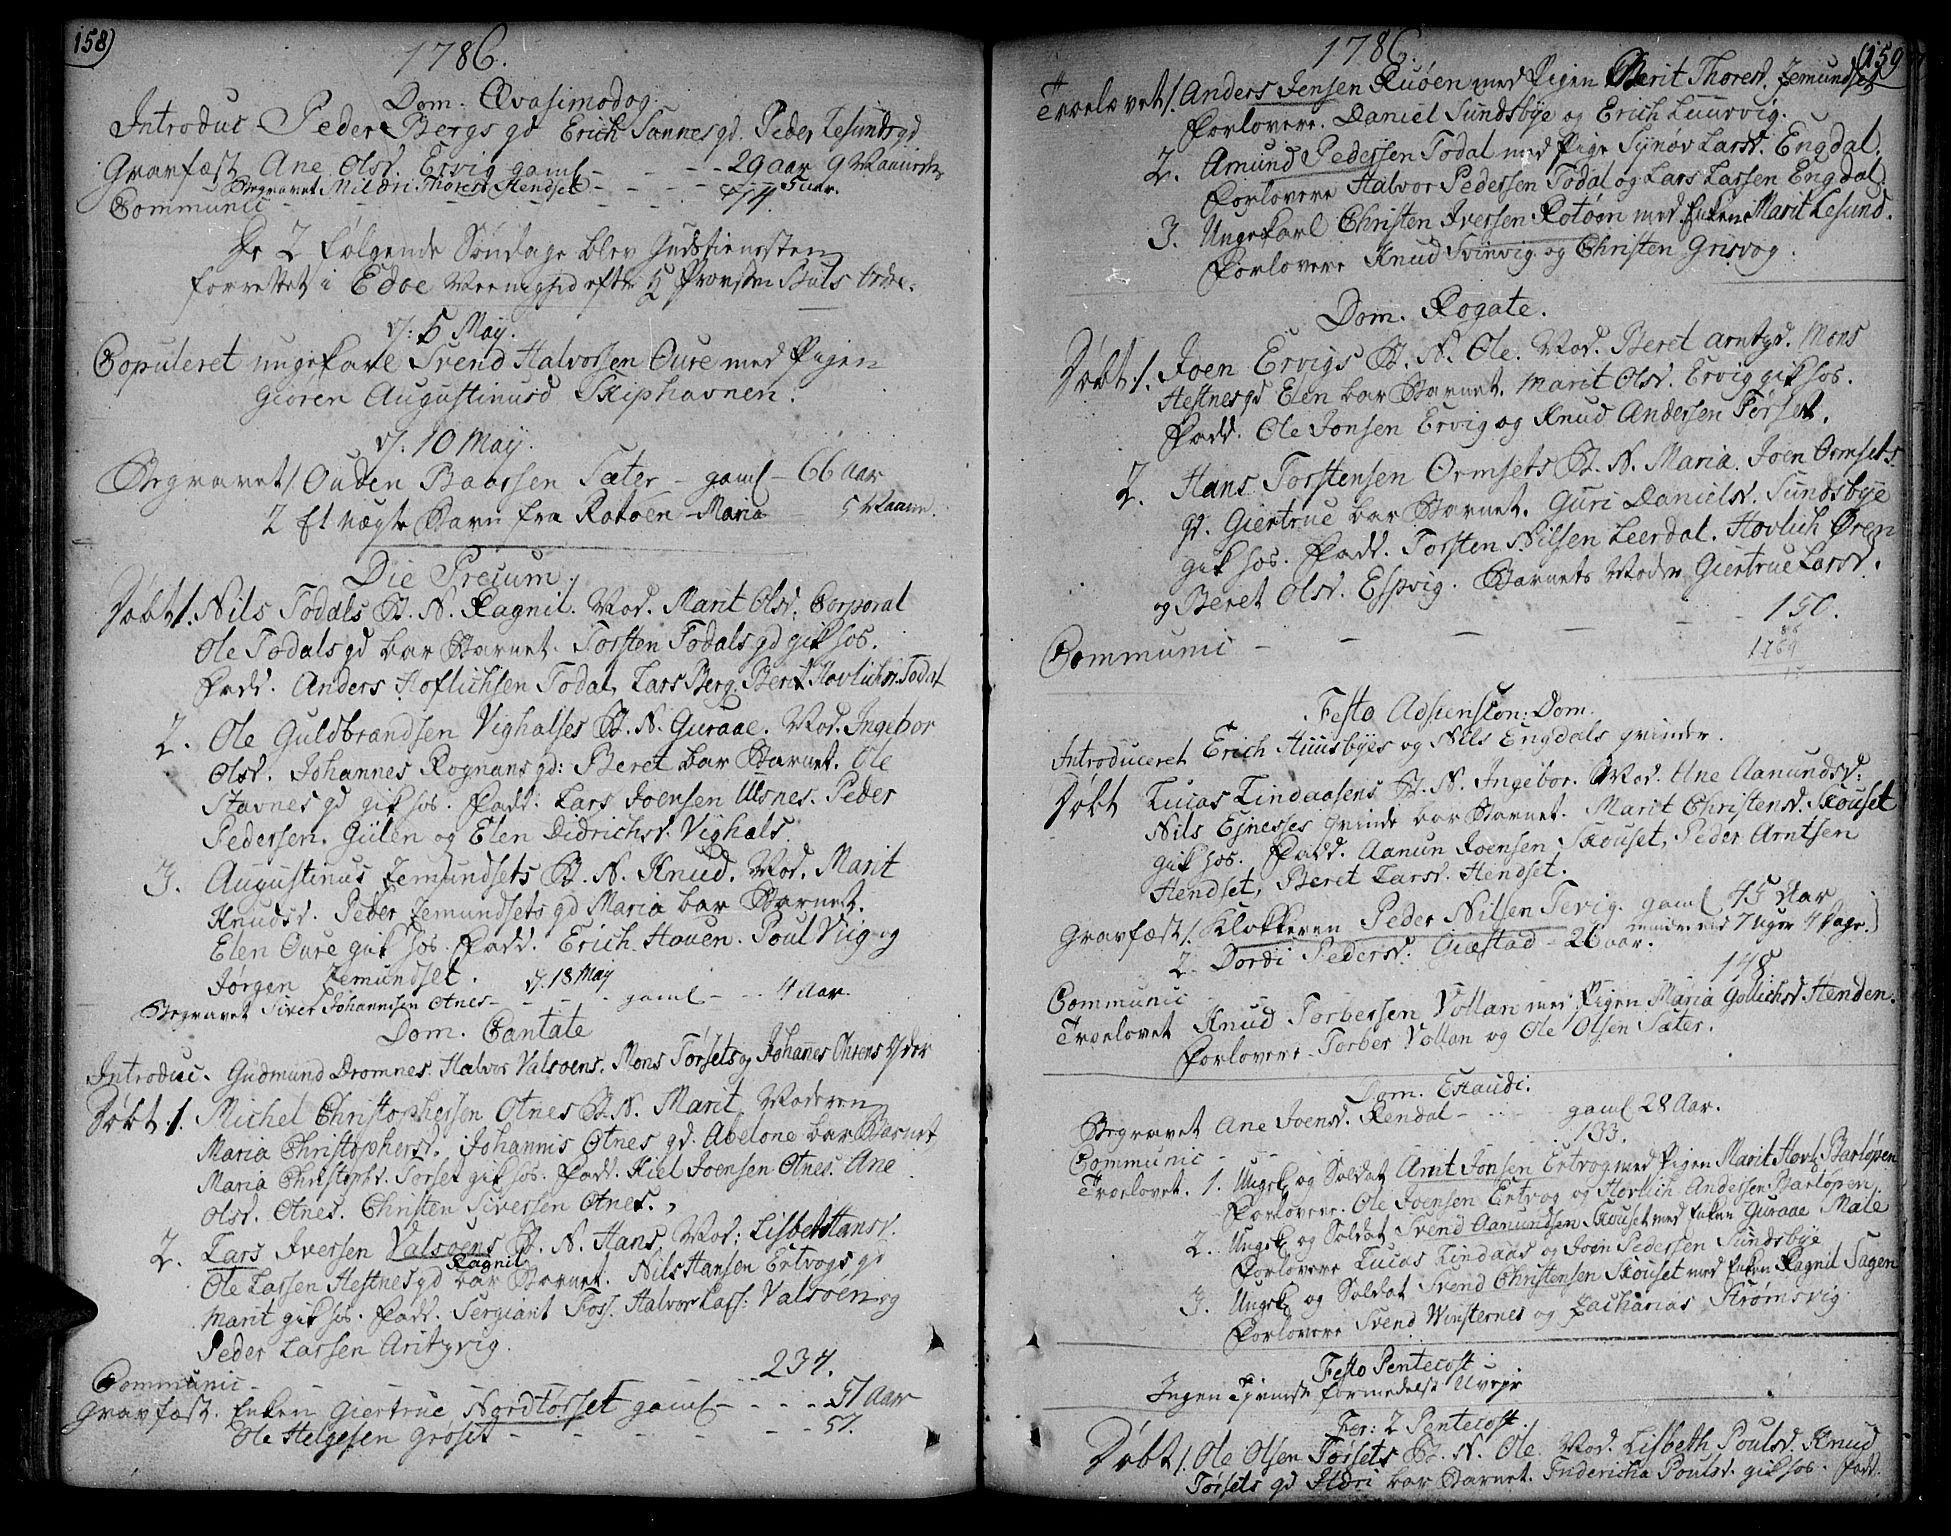 158)
1786.
Dom. Qvasimodog.
Introduc. Peder Bergs qd Erich Sannes qd. Peder Lesunds qd
Gravfæst Ane Olsd. Ervig gaml - - - 29 aar 9 Maaneder
Begravet Mildri Thoresd Hendset - - - - 5 uur.
Communic - - - - - - 74.
De 2 følgende Søndage blev Gudstienesten
forrettet i Edöe Meenighed efter H Provsten Buls Ordre.
d: 5 May.
Copuleret ungekarl Svend Halvorsen Oure med Pigen
Gioren Augustinusd Skiphavnen.
d. 10 May.
Begravet 1 Ouden Baarsen Sæter - gaml - 66 Aar
2 et uægte Barn fra Rotøen - Maria - 5 Maan.
Die Precum.
Døbt 1. Nils Todals B. N. Ragnil. Mod. Marit Olsd. Corporal
Ole Todals qd bar Barnet. Torsten Todals qd gik hos.
Fadd. Anders Hoflichsen Todal, Lars Berg. Berit Hovlichsd. Todal
2. Ole Guldbrandsen Vighalses B. N. Guraae. Mod. Ingebor
Olsd. Johannes Rognans qd: Beret bar Barnet. Ole
Stavnes qd gik hos. Fadd. Lars Joensen Ulsnes. Peder
Pedersen. Gülen og Elen Didrichsd. Vighals.
3. Augustinus Jemundsets B. N. Knud. Mod. Marit
Knudsd. Peder Jemundsets qd Maria bar Barnet.
Elen Oure gik hos. Fadd. Erich Hauen. Poul Viig og
Jørgen Jemundset. d. 18 May
Begravet Siver Johannsen Otnes - - - - gaml - - 4 Aar.
Dom. Cantate
Introduc. Gudmund Dromnes. Halvor Valsøens. Mons Tørsets og Johanes Ohrens qder
Døbt. 1. Michel Christophersen Otnes B. N. Marit Moderen
Maria Christophersd. Johannis Otnes qd. Abelone bar Barnet
Maria Christophd. Torset gik hos. Fadd. Kiel Joensen Otnes. Ane
Olsd. Otnes. Christen Siversen Otnes.
2. Lars Iversen Valsøens B. N. Hans, Mod: Lisbet Hansd.
Ole Larsen Hestnes qd Ragnil bar Barnet. Nils Hansen Ertvogs qd
Marit gik hos. Fadd. Sergiant Fos. Halvor Lars: Valsøen og
Peder Larsen Aritzvig.
Communic - - - - - - 234.
Gravfæst. Enken Giertrue Nordtørset gaml - - - 51 Aar
Ole Helgesen Grøset - - - - - 57.
(159
1786.
Troelovet 1. Anders Jensen Ruøen med Pigen Marit Thoresd. Jemundset
Forlovere. Daniel Sundsbye og Erich Luurvig.
2. Amund Pedersen Todal med Pige Synøv Larsd. Engdal.
Forlovere Halvor Pedersen Todal og Lars Larsen Engdal.
3. Ungekarl Christen Iversen Rotøen med Enken Marit Lesund.
Forlovere Knud Svinvig og Christen Grisvog.
Dom. Rogate.
Døbt 1. Joen Ervigs B. N. Ole. Mod. Beret Arntzd. Mons
Hestnes qd Elen bar Barnet. Marit Olsd. Ervig gik hos.
Fadd. Ole Jonsen Ervig og Knud Andersen Tørset.
2. Hans Torstensen Ormsets B. N. Maria. Joen Ormsets
qd. Giertrue bar Barnet. Guri Danielsd. Sundsbye
gik hos. Fadd. Torsten Nilsen Leerdal. Hovlich Øren
og Beret Olsd. Espvig. Barnets Moder Giertrue Larsd.
Communic - - - - - 150.
86
1769
17
Festo Adsenscon: Dom.
Introduceret Erich Huusbyes og Nils Engdals qvinder.
Døbt Lucas Lindaasens B. N. Ingebor. Mod. Ane Aamundsd:
Nils Ejnesses Qvinde bar Barnet. Marit Christensd. Skouset
gik hos. Fadd. Aanun Joensen Skouset, Peder Arntsen
Hendset, Beret Larsd. Hendset.
Gravfæst 1. Klokkeren Peder Nilsen Tevig. gaml 45 Aar
mindre end 7 uger 4 Dage.
2. Dordi Pedersd. Giæstad - 26 aar.
Communic - - 178
Troelovet Knud Torbersen Vollan med Pigen Maria Gollichsd. Henden.
Forlovere Torber Vollan og Ole Olsen Sæter.
Dom. Exaudi.
Begravet Ane Joensd. Rendal - - - - gaml 28 Aar.
Communic - - - 133.
Troelovet. 1. Ungk. og Soldat Arnt Jonsen Ertvog med Pigen Marit Hovl. Barløpen
Forlovere. Ole Joensen Ertvog og Hovlich Andersen Barløpen
2. Ungk. og Soldat Svend Aamundsen Skouset med Enken Guraae Mæle
Forlovere Lucas Lindaas og Joen Pedersen Sundsbye
3. Ungk. og Soldat Svend Christensen Skouset med Enken Ragnil Sagen
Forlovere Svend Winsternes og Zacharias Strømsvig
Festo Pentecost
Ingen Tieniste formedelst Uveyr
Fer: 2 Pentecost.
Døbt 1. Ole Olsen Tørsets B. N. Ole. Mod. Lisbeth Poulsd. Knud
Tørsets qd Sidri bar Barnet. Friderica Poulsd. gik hos. Fadd.